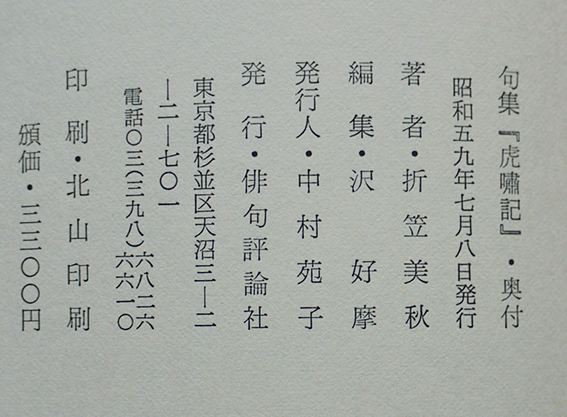 句集『虎嘯記』・奥付
昭和五九年七月八日発行
著者・折笠美秋
編集・沢好摩
発行人・中村苑子
発行・俳句評論社
東京都杉並区天沼三―二
―二―七〇一
電話〇三(三九八)六八二六
六六一〇
印刷・北山印刷
頒価・三三〇〇円